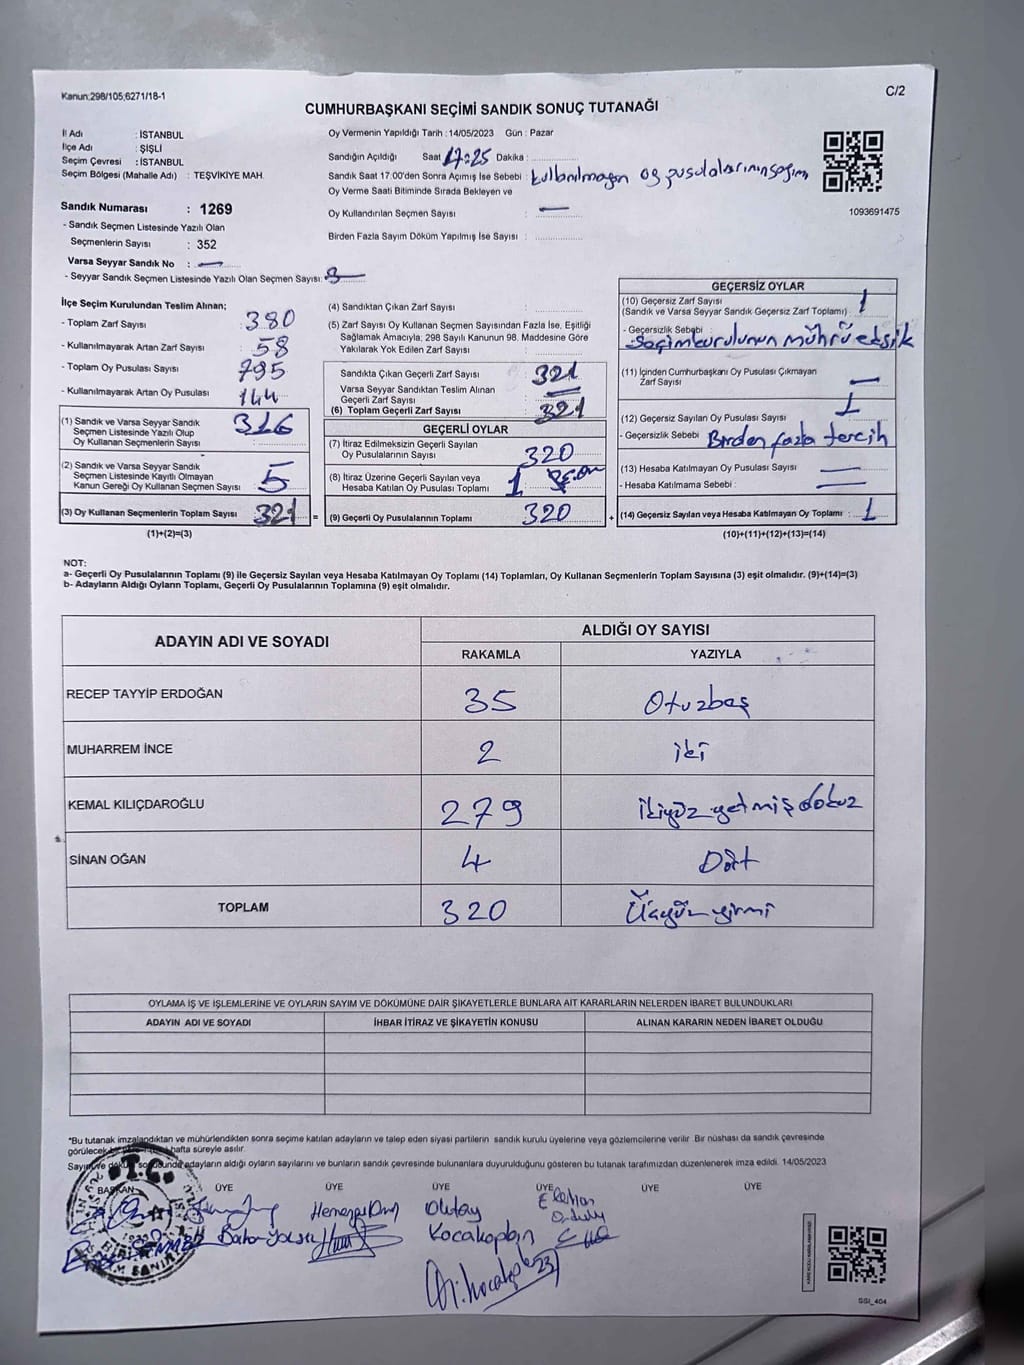 Kanun;298/105;6271/18-1
C/2
CUMHURBAŞKANI SEÇİMİ SANDIK SONUÇ TUTANAĞI
İl Adı : İSTANBUL
İlçe Adı : ŞİŞLİ
Seçim Çevresi : İSTANBUL
Seçim Bölgesi (Mahalle Adı) : TEŞVİKİYE MAH.
Sandık Numarası : 1269
- Sandık Seçmen Listesinde Yazılı Olan
Seçmenlerin Sayısı : 352
Varsa Seyyar Sandık No : —
- Seyyar Sandık Seçmen Listesinde Yazılı Olan Seçmen Sayısı:
Oy Vermenin Yapıldığı Tarih : 14/05/2023 Gün : Pazar
Sandığın Açıldığı Saat 17:25 Dakika :
Sandık Saat 17:00'den Sonra Açımış İse Sebebi : kullanılmayan oy pusulalarının sayımı
Oy Verme Saati Bitiminde Sırada Bekleyen ve
Oy Kullandırılan Seçmen Sayısı : —
Birden Fazla Sayım Döküm Yapılmış İse Sayısı :
1093691475
İlçe Seçim Kurulundan Teslim Alınan;
- Toplam Zarf Sayısı 380
- Kullanılmayarak Artan Zarf Sayısı 58
- Toplam Oy Pusulası Sayısı 795
- Kullanılmayarak Artan Oy Pusulası 144
(1) Sandık ve Varsa Seyyar Sandık
Seçmen Listesinde Yazılı Olup
Oy Kullanan Seçmenlerin Sayısı 316
(2) Sandık ve Varsa Seyyar Sandık
Seçmen Listesinde Kayıtlı Olmayan
Kanun Gereği Oy Kullanan Seçmen Sayısı 5
(3) Oy Kullanan Seçmenlerin Toplam Sayısı 321 =
(1)+(2)=(3)
(4) Sandıktan Çıkan Zarf Sayısı :
(5) Zarf Sayısı Oy Kullanan Seçmen Sayısından Fazla İse, Eşitliği
Sağlamak Amacıyla; 298 Sayılı Kanunun 98. Maddesine Göre
Yakılarak Yok Edilen Zarf Sayısı :
Sandıkta Çıkan Geçerli Zarf Sayısı : 321
Varsa Seyyar Sandıktan Teslim Alınan
Geçerli Zarf Sayısı : —
(6) Toplam Geçerli Zarf Sayısı : 321
GEÇERLİ OYLAR
(7) İtiraz Edilmeksizin Geçerli Sayılan
Oy Pusulalarının Sayısı : 320
(8) İtiraz Üzerine Geçerli Sayılan veya
Hesaba Katılan Oy Pusulası Toplamı : 1
(9) Geçerli Oy Pusulalarının Toplamı : 320 +
GEÇERSİZ OYLAR
(10) Geçersiz Zarf Sayısı
(Sandık ve Varsa Seyyar Sandık Geçersiz Zarf Toplamı) : 1
- Geçersizlik Sebebi :
Seçim kurulunun mührü eksik
(11) İçinden Cumhurbaşkanı Oy Pusulası Çıkmayan
Zarf Sayısı : —
(12) Geçersiz Sayılan Oy Pusulası Sayısı : 1
- Geçersizlik Sebebi Birden fazla tercih
(13) Hesaba Katılmayan Oy Pusulası Sayısı : —
- Hesaba Katılmama Sebebi : —
(14) Geçersiz Sayılan veya Hesaba Katılmayan Oy Toplamı : 1
(10)+(11)+(12)+(13)=(14)
NOT:
a- Geçerli Oy Pusulalarının Toplamı (9) ile Geçersiz Sayılan veya Hesaba Katılmayan Oy Toplamı (14) Toplamları, Oy Kullanan Seçmenlerin Toplam Sayısına (3) eşit olmalıdır. (9)+(14)=(3)
b- Adayların Aldığı Oyların Toplamı, Geçerli Oy Pusulalarının Toplamına (9) eşit olmalıdır.
ADAYIN ADI VE SOYADI
ALDIĞI OY SAYISI
RAKAMLA YAZIYLA
RECEP TAYYİP ERDOĞAN 35 Otuzbeş
MUHARREM İNCE 2 iki
KEMAL KILIÇDAROĞLU 279 ikiyüz yetmiş dokuz
SİNAN OĞAN 4 Dört
TOPLAM 320 Üçyüz yirmi
OYLAMA İŞ VE İŞLEMLERİNE VE OYLARIN SAYIM VE DÖKÜMÜNE DAİR ŞİKAYETLERLE BUNLARA AİT KARARLARIN NELERDEN İBARET BULUNDUKLARI
ADAYIN ADI VE SOYADI İHBAR İTİRAZ VE ŞİKAYETİN KONUSU ALINAN KARARIN NEDEN İBARET OLDUĞU
*Bu tutanak imzalandıktan ve mühürlendikten sonra seçime katılan adayların ve talep eden siyasi partilerin sandık kurulu üyelerine veya gözlemcilerine verilir. Bir nüshası da sandık çevresinde
görülecek hafta süreyle asılır.
Sayım ve döküm sonucunda adayların aldığı oyların sayılarını ve bunların sandık çevresinde bulunanlara duyurulduğunu gösteren bu tutanak tarafımızdan düzenlenerek imza edildi. 14/05/2023
BAŞKAN ÜYE ÜYE ÜYE ÜYE ÜYE ÜYE
T.C.
Olutay
Kocakaplan
SSI_404